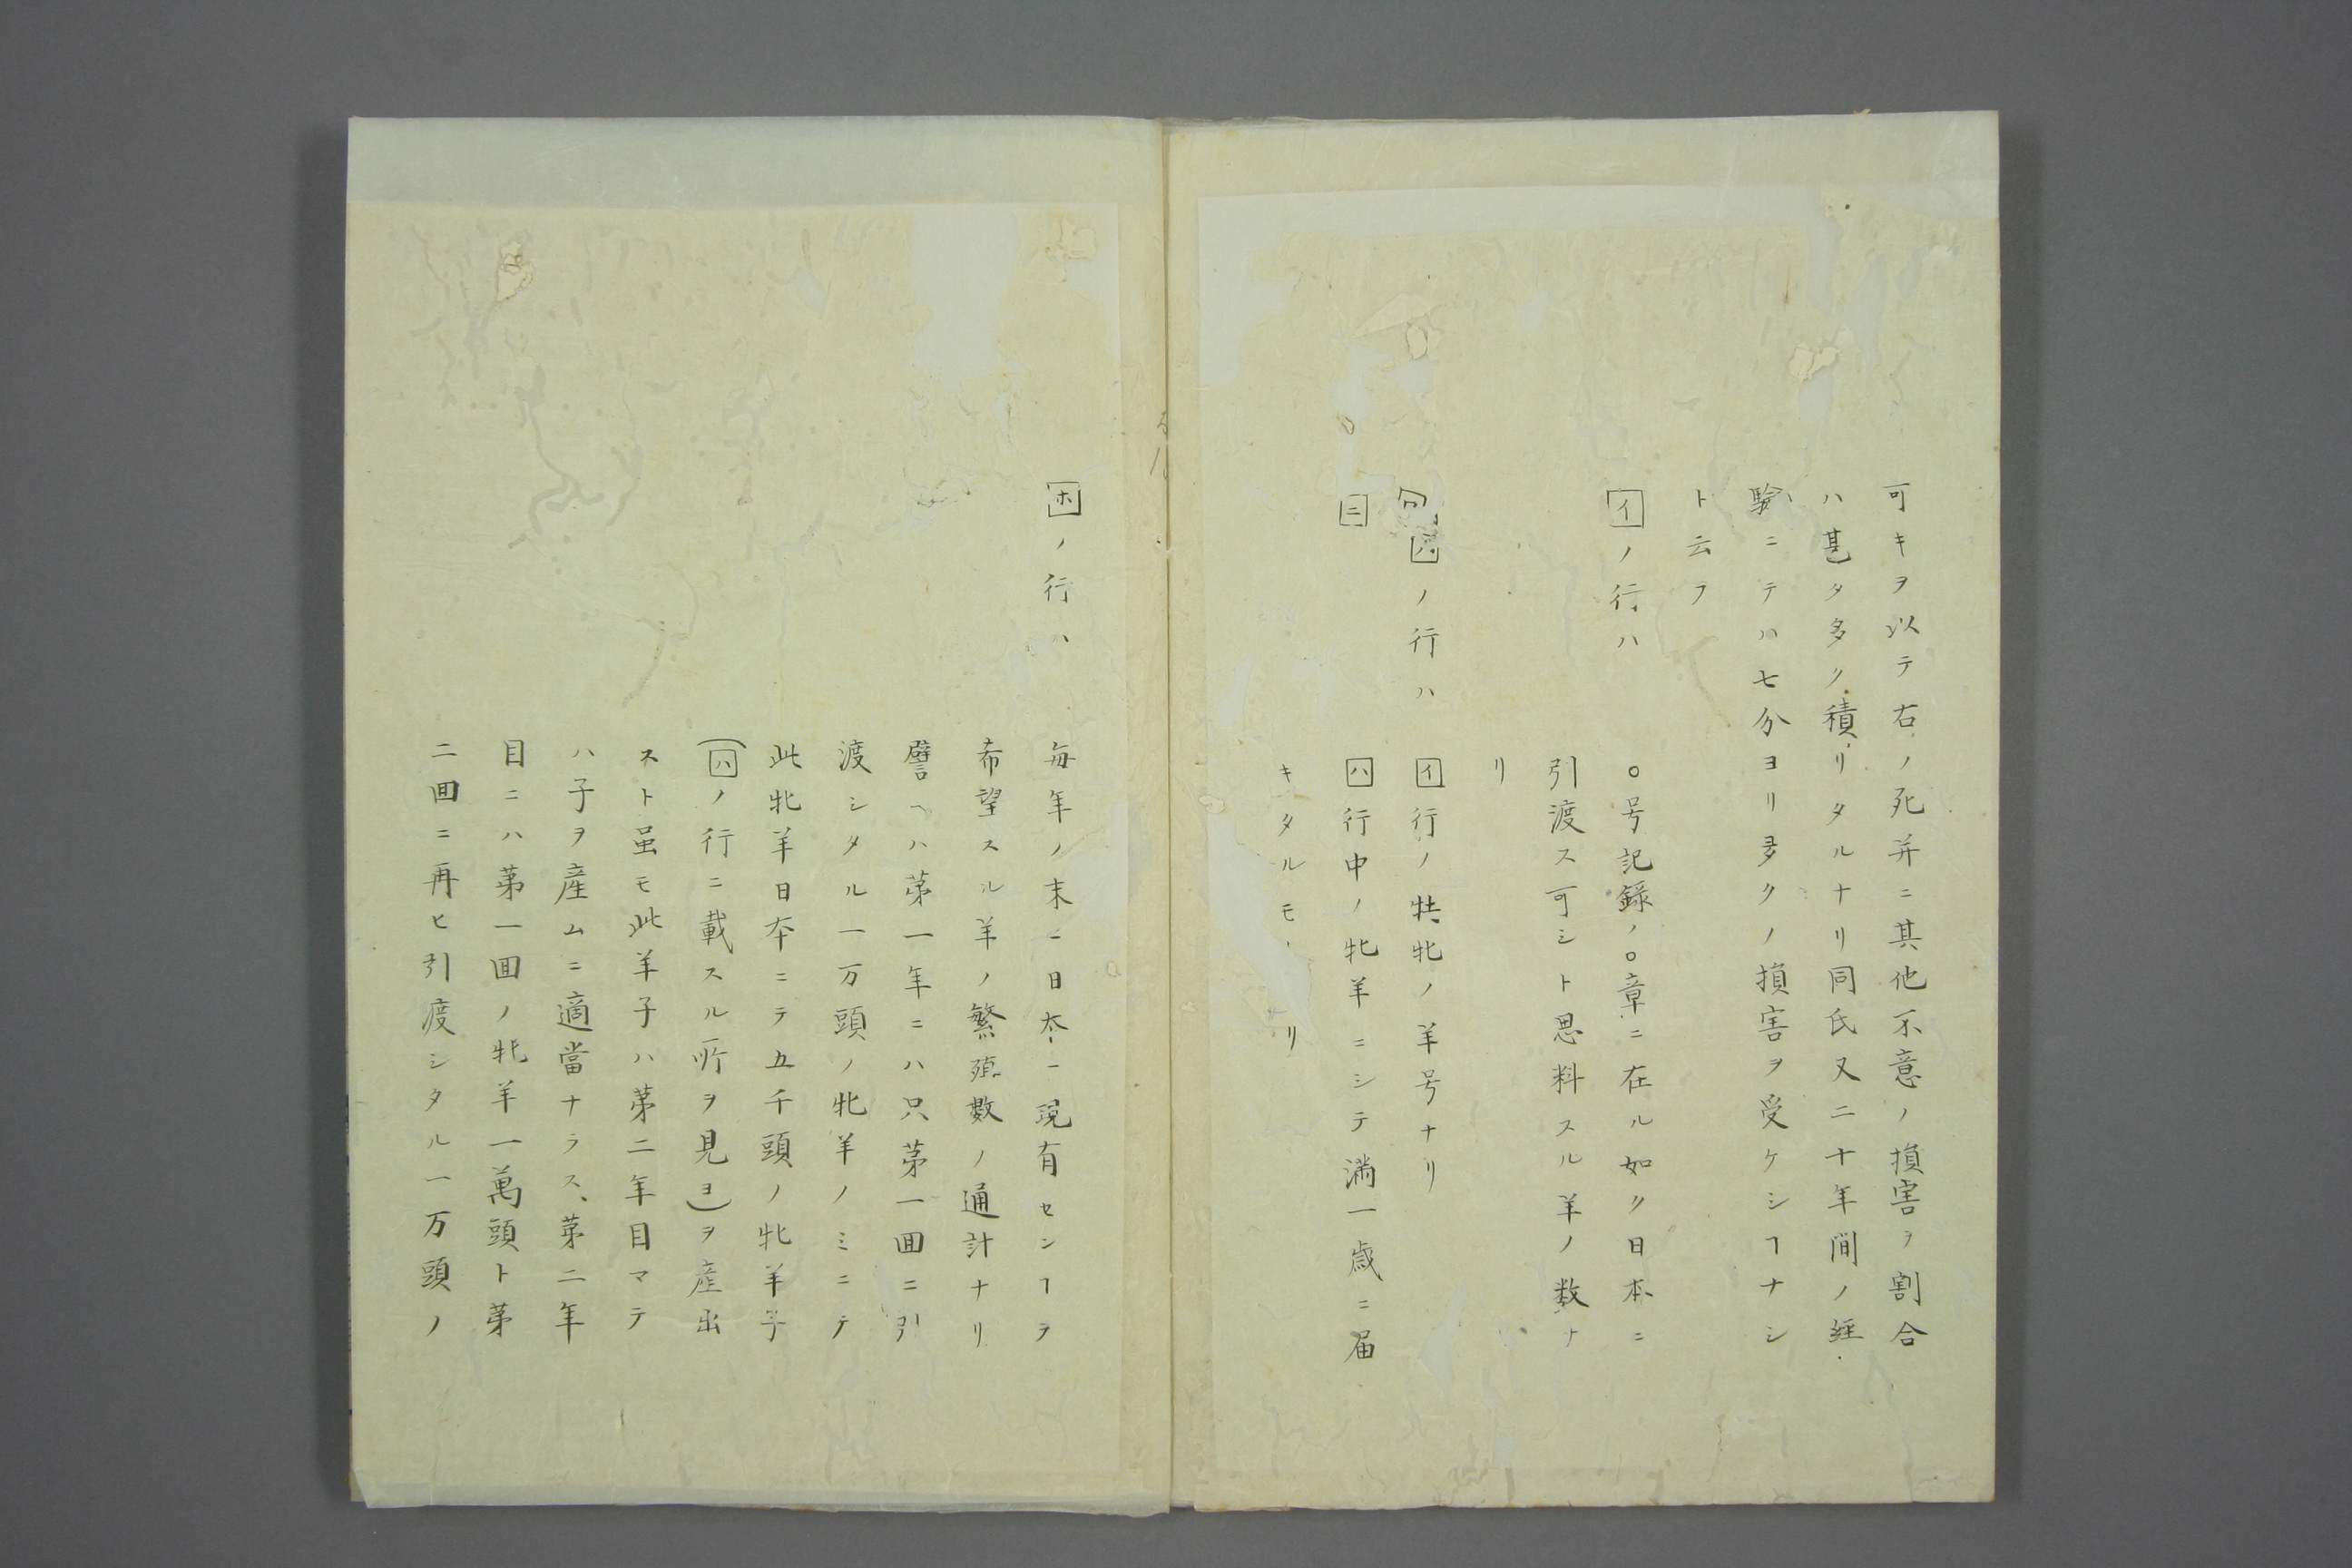 可キヲ以テ右ノ死并ニ其他不意ノ損害ヲ割合
ハ甚タ多ク積リタルナリ同氏又二十年間ノ経
驗ニテハ七分ヨリ多クノ損害ヲ受ケシヿナシ
ト云フ
イノ行ハ ○号記録ノ○章ニ在ル如ク日本ニ
引渡ス可シト思料スル羊ノ数ナ
リ
ハノ行ハ イ行ノ牡牝ノ羊号ナリ
ニ ハ行中ノ牝羊ニシテ満一歳ニ届
キタルモ リ
ホノ行ハ 毎年ノ末ニ日本ニ現有センヿヲ
希望スル羊ノ繁殖數ノ通計ナリ
譬ヘハ苐一年ニハ只苐一囬ニ引
渡シタル一万頭ノ牝羊ノミニテ
此牝羊日本ニテ五千頭ノ牝羊子
(ハノ行ニ載スル所ヲ見ヨ)ヲ産出
スト虽モ此羊子ハ苐二年目マテ
ハ子ヲ産ムニ適當ナラス、苐二年
目ニハ苐一囬ノ牝羊一萬頭ト苐
二囬ニ再ヒ引渡シタル一万頭ノ